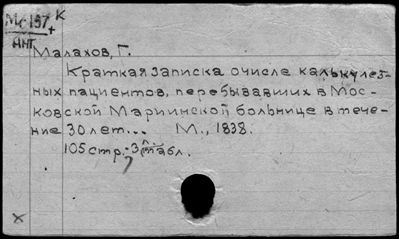 Мс 157 к
Анг +
Малахов, Г.
Краткая записка о числе калькулез-
ных пациентов, перебывавших в Мос-
ковской Мариинской больнице в тече-
ние 30 лет... М., 1838.
105 стр., 3 табл.